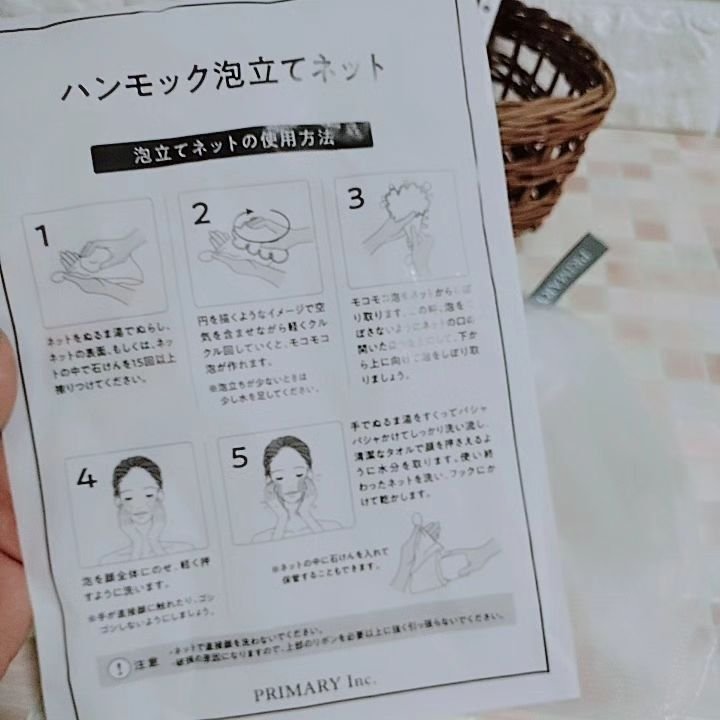 ハンモック泡立てネット
泡立てネットの使用方法
1
ネットをぬるま湯でぬらし、
ネットの表面、もしくは、ネッ
トの中で石けんを15回以上
擦りつけてください。
2
円を描くようなイメージで空
気を含ませながら軽くクル
クル回していくと、モコモコ
泡が作れます。
※泡立ちが少ないときは
少し水を足してください。
3
モコモコ泡をネットからしぼ
り取ります。この時、泡をこ
ぼさないようにネットの口の
開いた
ら上に向けて泡をしぼり取
りましょう。
4
泡を顔全体にのせ、軽く押
すように洗います。
※手が直接顔に触れたり、ゴシ
ゴシしないようにしましょう。
5
手でぬるま湯をすくってパシャ
パシャかけてしっかり洗い流し、
清潔なタオルで顔を押さえるよ
うに水分を取ります。使い終
わったネットを洗い、フックにか
けて乾かします。
※ネットの中に石けんを入れて
保管することもできます。
注意
・ネットで直接顔を洗わないでください。
・破損の原因になりますので、上部のリボンを必要以上に強く引っ張らないでください。
PRIMARY Inc.
PRIMARY